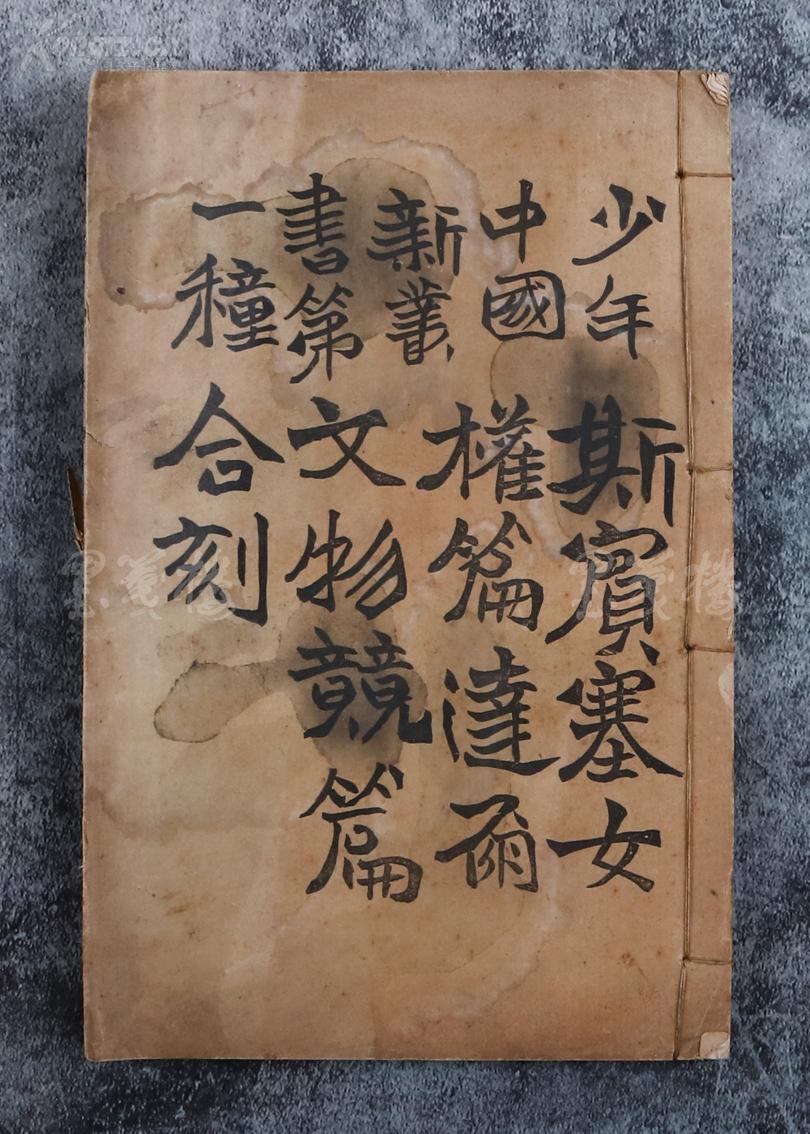 少年
中國
新叢
書第
一種
斯賓塞女
權篇達爾
文物競篇
合刻